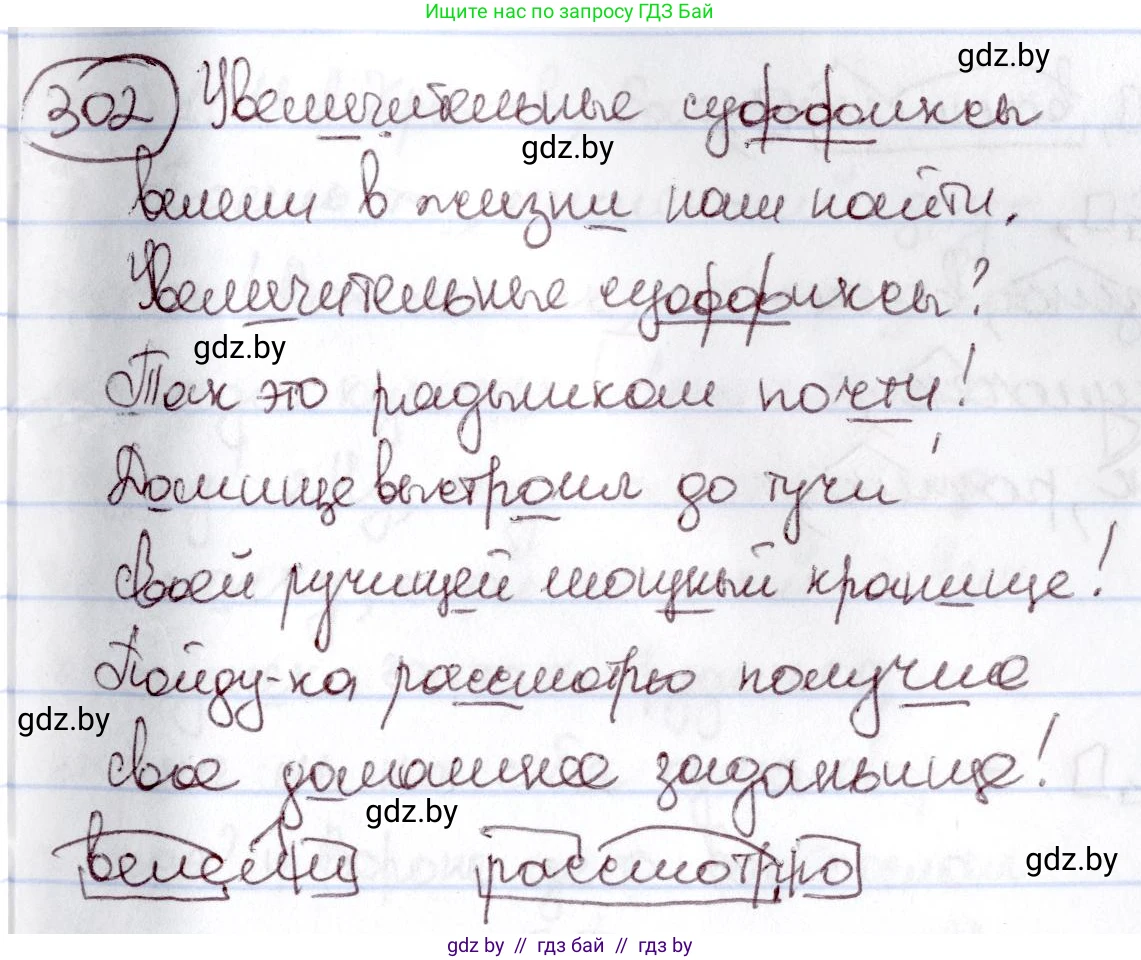 Ищите нас по запросу ГДЗ Бай
gdz.by
302 Увеличительные суффиксы
gdz.by
велели в жизни нам найти.
Увеличительные суффиксы?
gdz.by
Так это рядышком почти!
Домище выстроил до тучи
своей ручищей мощный кранище!
Пойду-ка, рассмотрю получше
gdz.by
своё домашнее заданьище!
gdz.by
велели рассмотрю
gdz.by
gdz by // гдз бай // гдз by